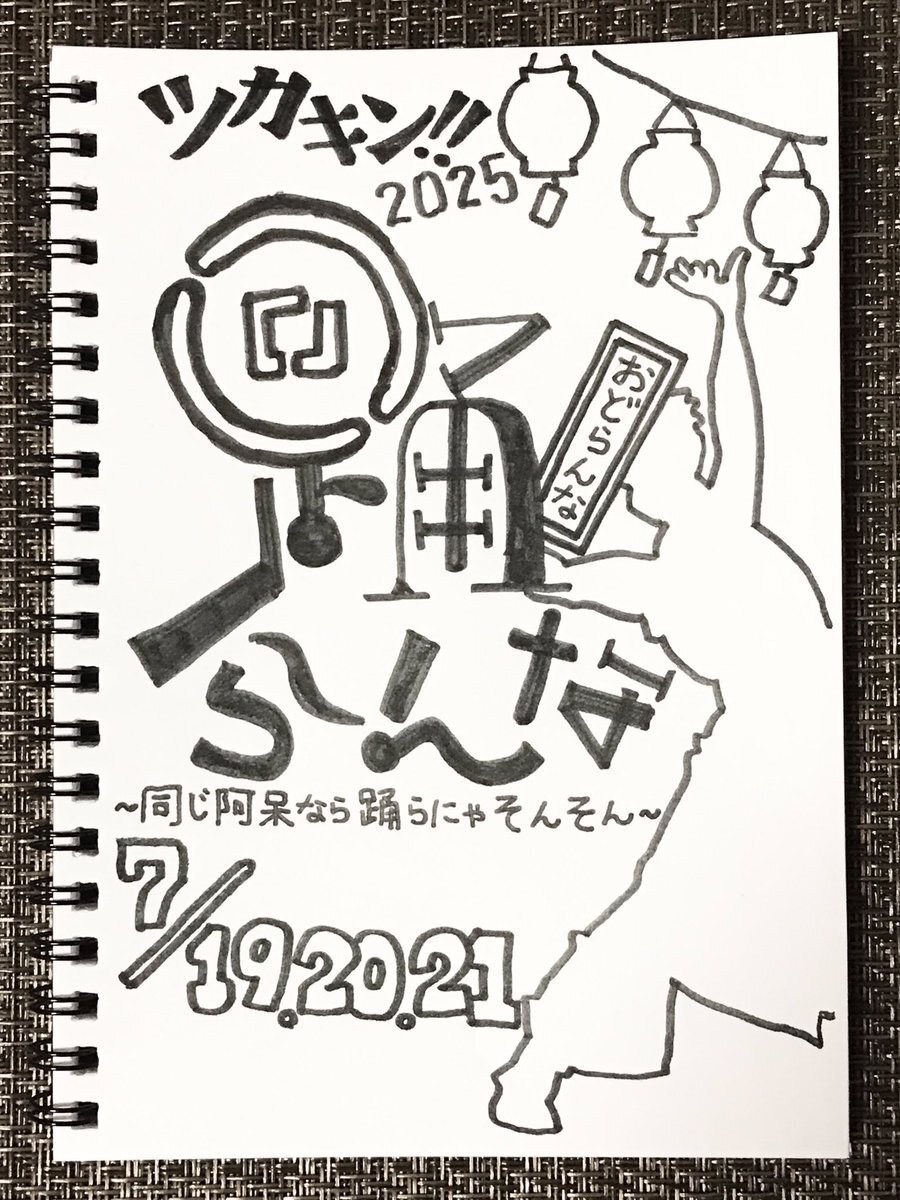 ツカキン!!
2025
おどらんな
踊らんな
~同じ阿呆なら踊らにゃそんそん~
7/19.20.21